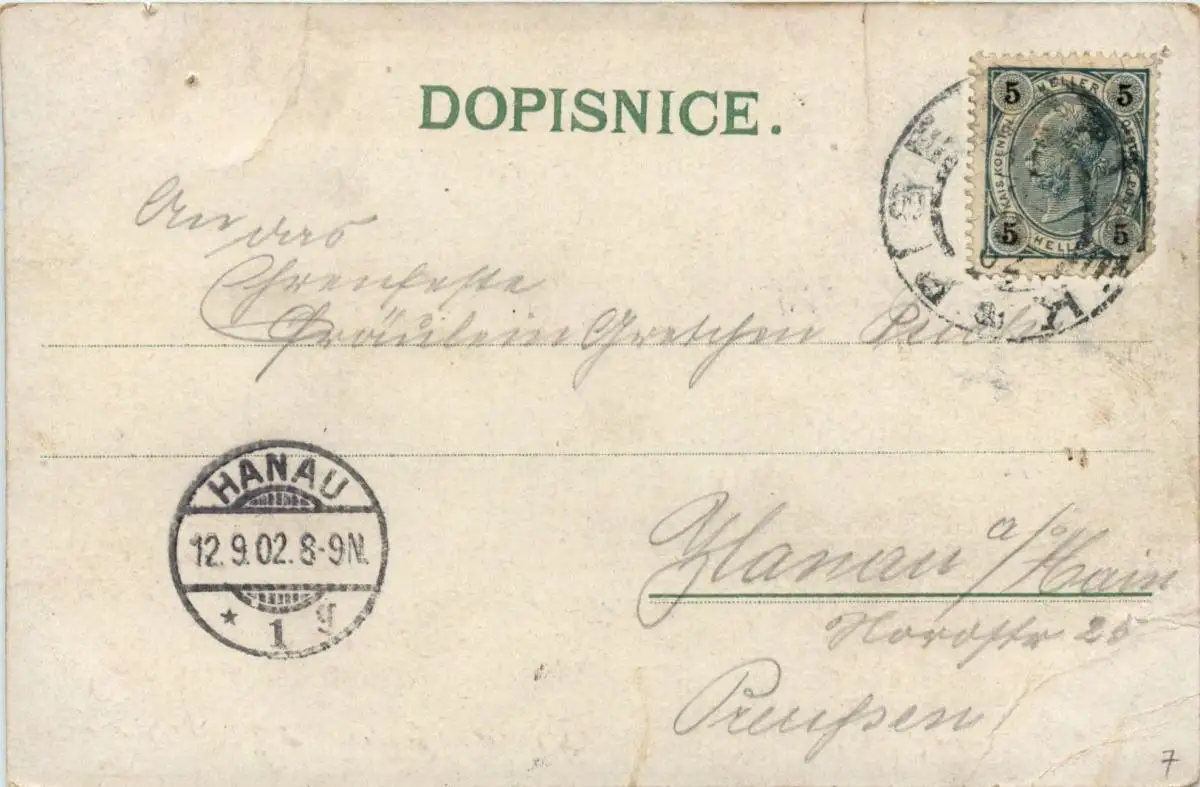 DOPISNICE.
5 HELLER 5
KAIS. KOENIGL.
5 HELLER 5
PISEK
An das
Ehrenfeste
Fräulein Gretchen
HANAU
12.9.02.8-9N.
* 1 g
Hanau a/Main
Nordstr 25
Preußen
7